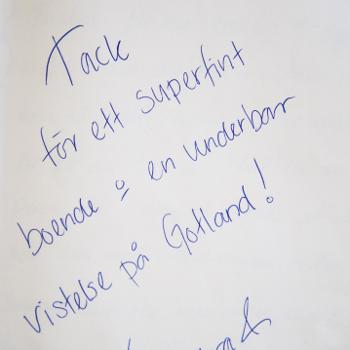 Tack
för ett superfint
boende o en underbar
vistelse på Gotland!